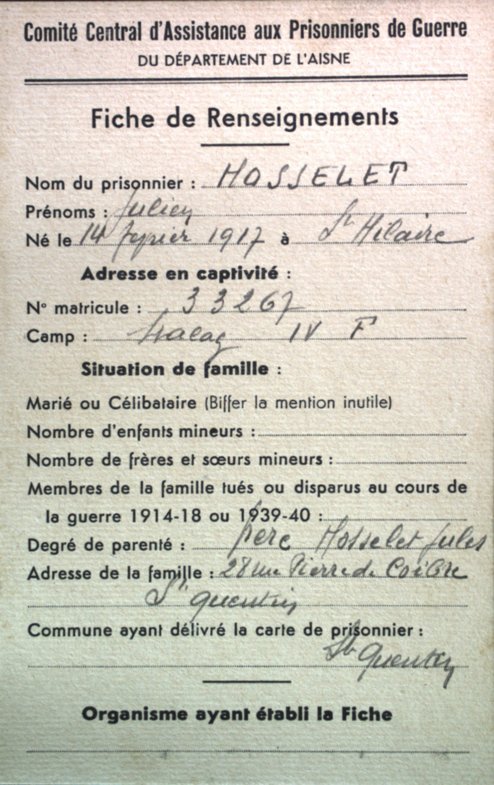 Comité Central d'Assistance aux Prisonniers de Guerre
DU DÉPARTEMENT DE L'AISNE
Fiche de Renseignements
Nom du prisonnier : HOSSELET
Prénoms : Julien
Né le 14 février 1917 à St Hilaire
Adresse en captivité :
N° matricule : 33267
Camp : Stalag IV F
Situation de famille :
Marié ou Célibataire (Biffer la mention inutile)
Nombre d'enfants mineurs :
Nombre de frères et sœurs mineurs :
Membres de la famille tués ou disparus au cours de
la guerre 1914-18 ou 1939-40 :
Degré de parenté : père Hosselet Jules
Adresse de la famille : 28 rue Pierre de
St Quentin
Commune ayant délivré la carte de prisonnier :
St Quentin
Organisme ayant établi la Fiche